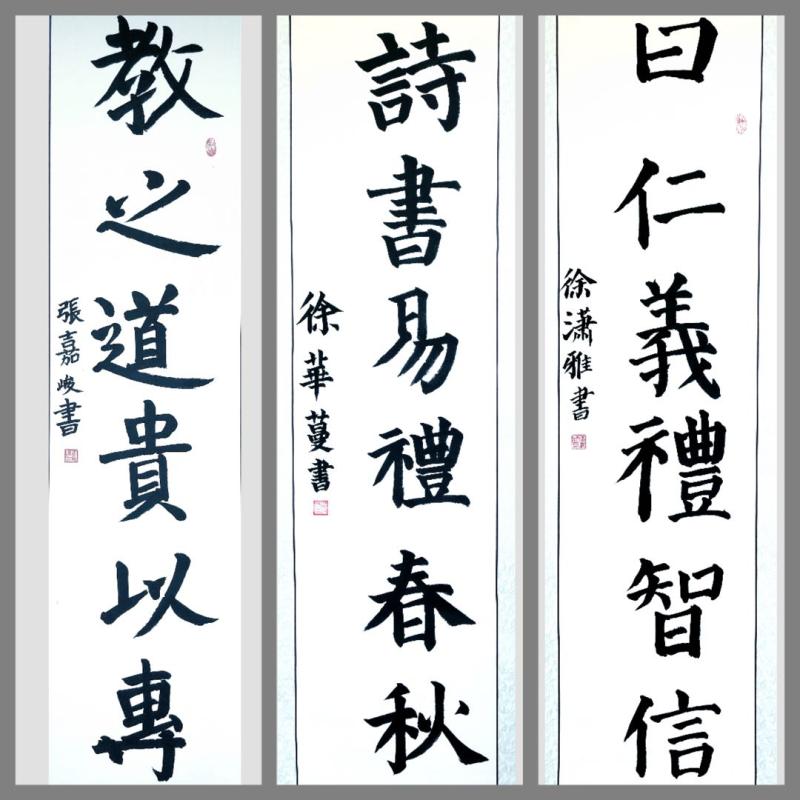 教之道貴以專
張嘉峻書
詩書易禮春秋
徐華蔓書
曰仁義禮智信
徐瀟雅書